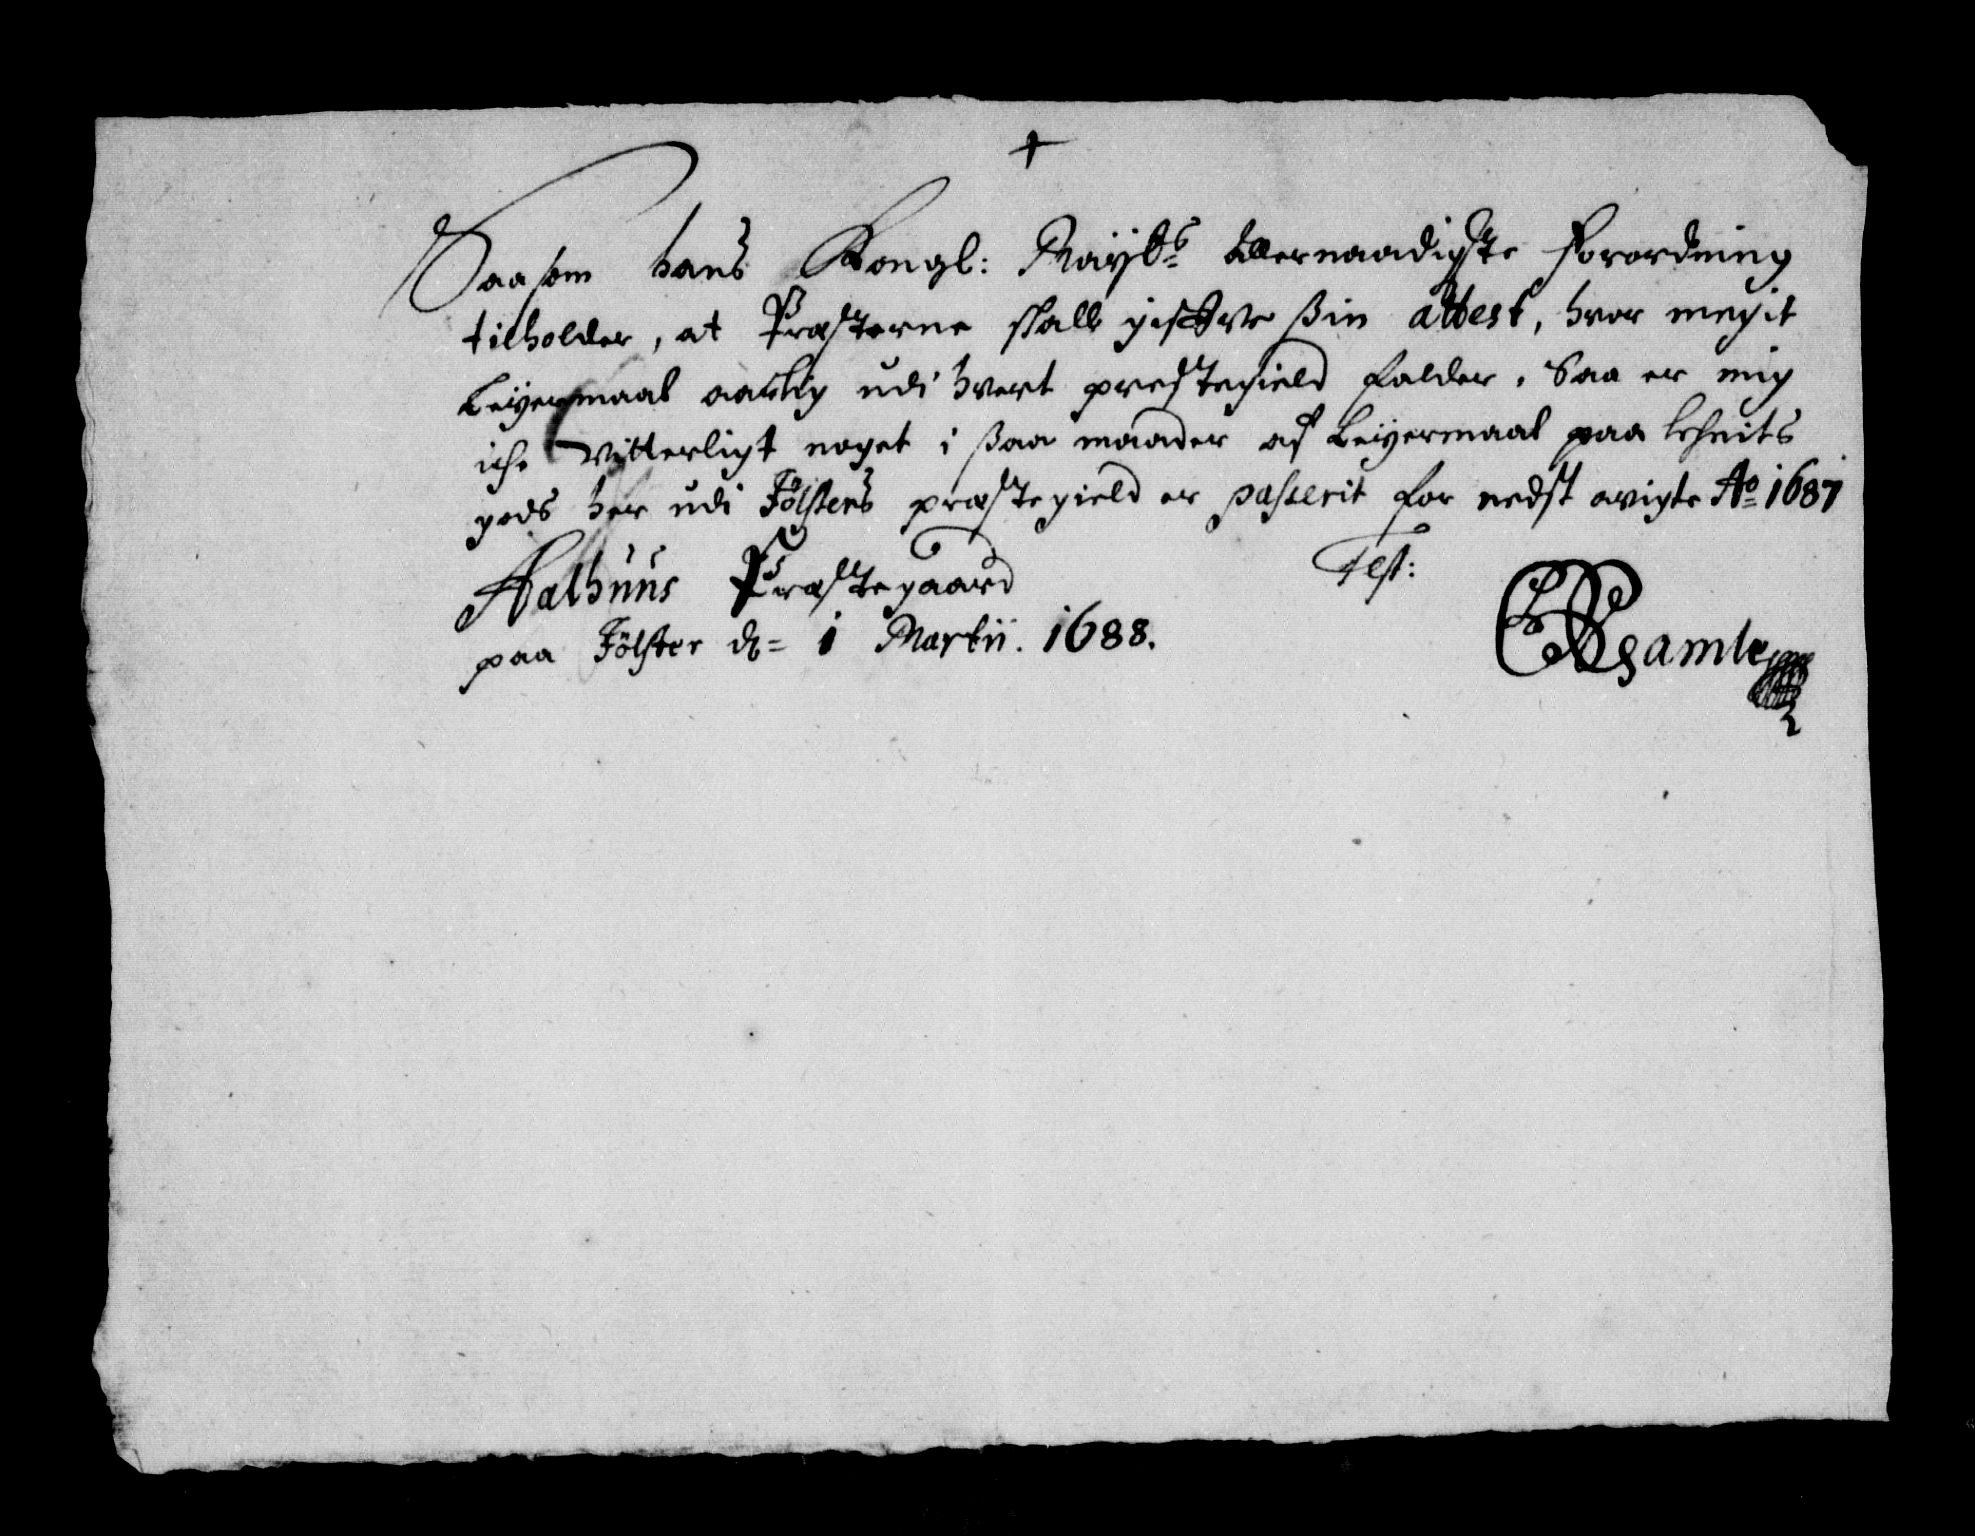 +
Saasom hans Kongl: Mayts allernaadigste forordning
tilholder, at Præsterne skall gifve ßin attest, hvor megit
Leyermaal aarlig udi hvert prestegield falder, Saa er mig
iche vitterligt noget i ßaa maader af Leyermaal paa
gods her udi Jölsters præstegield er passerit for nedst avigte Ao 1687
Aalhuus Præstegaard Test:
paa Jölster d= 1 Martii. 1688.
Gamle